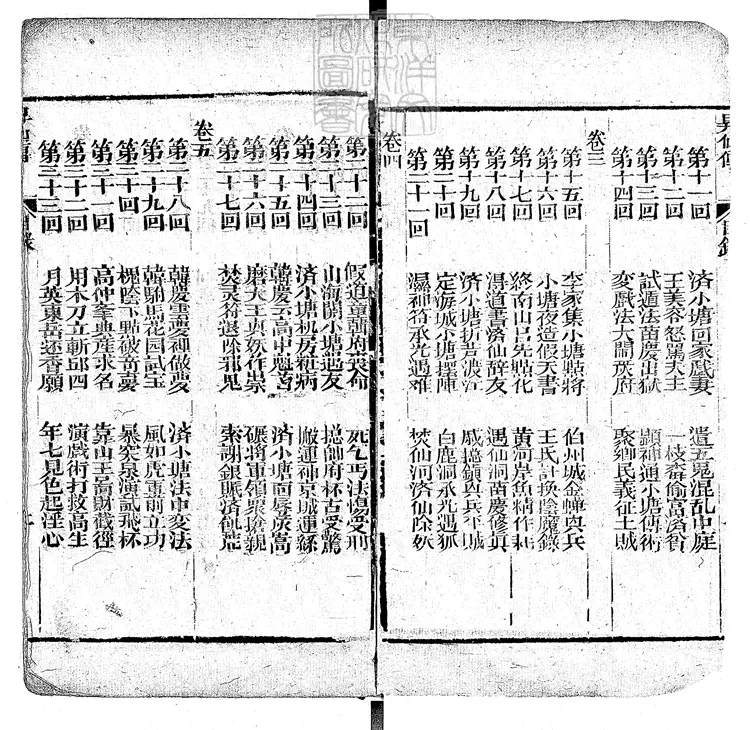 第十一回 济小塘回家戲妻 遣五鬼混乱中庭
第十二回 王美容怒罵夫主 一枝梅偷富济貧
第十三回 試遁法苗慶出獄 顯神通小塘傳術
第十四回 变戲法大鬧府 聚鄉民義征土賊
卷三
第十五回 李家集小塘點將 伯州城金蟬兵
第十六回 小塘夜造假天書 王氏計換陰魔錄
第十七回 終南山吕先點化 黄河岸魚精作耗
第十八回 得道書济仙辞友 遇仙洞苗慶修真
第十九回 济小塘折芦渡江 兵平賊
第二十回 定海城小塘擺陣 白鹿洞承光遇狐
第二十一回 濕神符承光遇难 焚仙河济仙除妖
卷四
第二十二回 假韓府 死乞丐法受刑
第二十三回 山海關小塘遇友 帥府杯古受驚
第二十四回 济小塘机房租病 搬運神京城運絲
第二十五回 韓慶云高中魁首 济小塘面辱嚴嵩
第二十六回 磨大王貞妖作祟 碾將軍領衆搶親
第二十七回 焚灵符退除邪鬼 索謝銀賑济飢荒
卷五
第二十八回 韓慶云爱神做夢 济小塘法中变法
第二十九回 韓駙馬花园試宝 風如虎
第三十回 槐陰下點破奇夢 暴突泉演試飛杯
第三十一回 高仲舉典産求名 靠山王啇財截徑
第三十二回 用木刀立斬邱四 演戲術打救高生
第三十三回 月英東岳还香願 年七見色起淫心